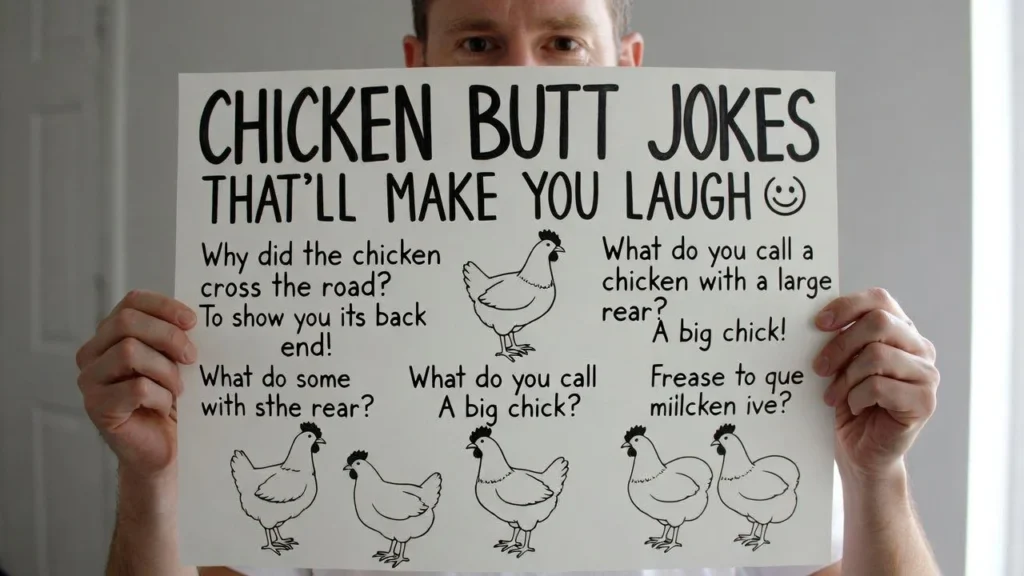 CHICKEN BUTT JOKES
THAT'LL MAKE YOU LAUGH
Why did the chicken
cross the road?
To show you its back
end!
What do you call a
chicken with a large
rear?
A big chick!
What do some
with sthe rear?
What do you call
A big chick?
Frease to que
miilcken ive?